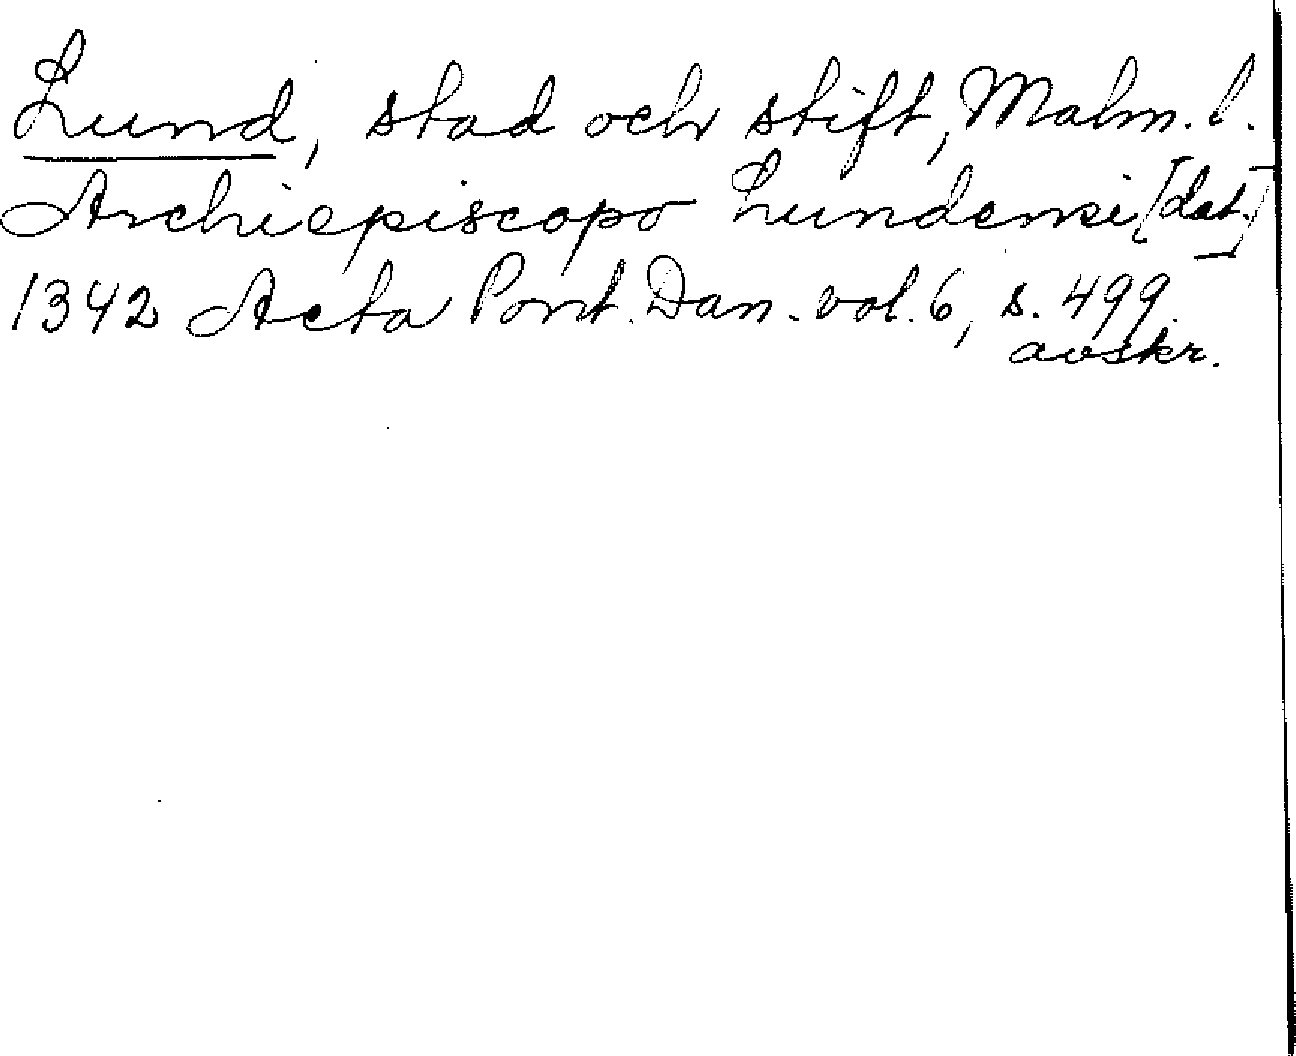 Lund, stad och stift, Malm. l.
Archiepiscopo Lundensi [dat.]
1342 Acta Pont. Dan. vol. 6, s. 499.
avskr.